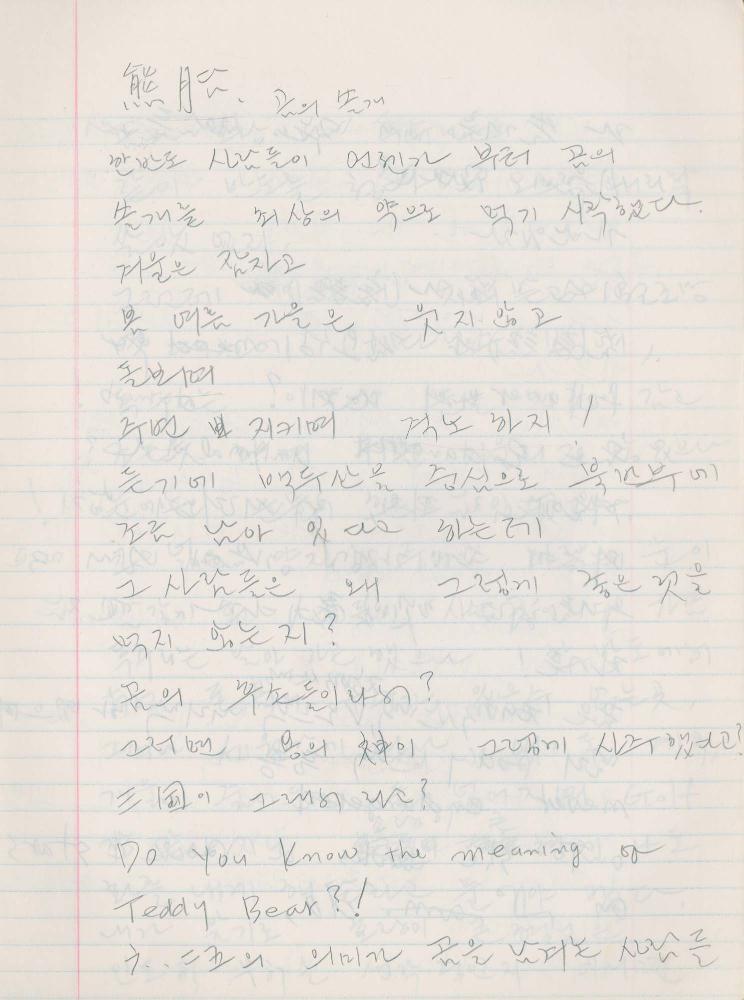 熊膽. 곰의 쓸개
한반도 사람들이 언젠가 부터 곰의
쓸개를 최상의 약으로 먹기 시작했다.
겨울은 잠자고
봄 여름 가을은 웃지 않고
돌보며
주변 지키며 격노 하지!
듣기에 백두산을 중심으로 북관부에
조금 남아 있다고 하는데
그 사람들은 왜 그렇게 좋은 것을
먹지 않는지?
곰의 후손들이라서?
그러면 용의 이 그렇게 시작했다고?
三國이 그래서 라고?
Do you know the meaning of
Teddy Bear?!
의 의미가 곰을 남기는 사람들